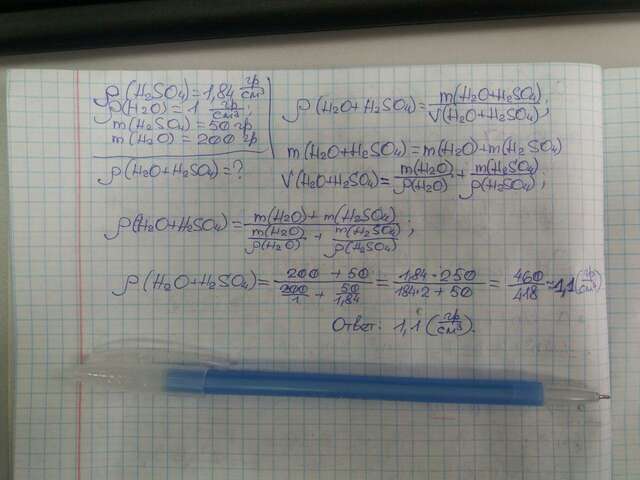 ρ(H₂SO₄) = 1,84 гр/см³
ρ(H₂O) = 1 гр/см³;
m(H₂SO₄) = 50 гр
m(H₂O) = 200 гр
ρ(H₂O+H₂SO₄) = ?
ρ(H₂O+H₂SO₄) = m(H₂O+H₂SO₄)/V(H₂O+H₂SO₄);
m(H₂O+H₂SO₄) = m(H₂O)+m(H₂SO₄)
V(H₂O+H₂SO₄) = m(H₂O)/ρ(H₂O) + m(H₂SO₄)/ρ(H₂SO₄);
ρ(H₂O+H₂SO₄) = (m(H₂O)+m(H₂SO₄))/(m(H₂O)/ρ(H₂O) + m(H₂SO₄)/ρ(H₂SO₄));
ρ(H₂O+H₂SO₄) = (200+50)/(200/1 + 50/1,84) = (1,84·250)/(184·2+50) = 460/418 = 1,1 (гр/см³)
Ответ: 1,1 (гр/см³).